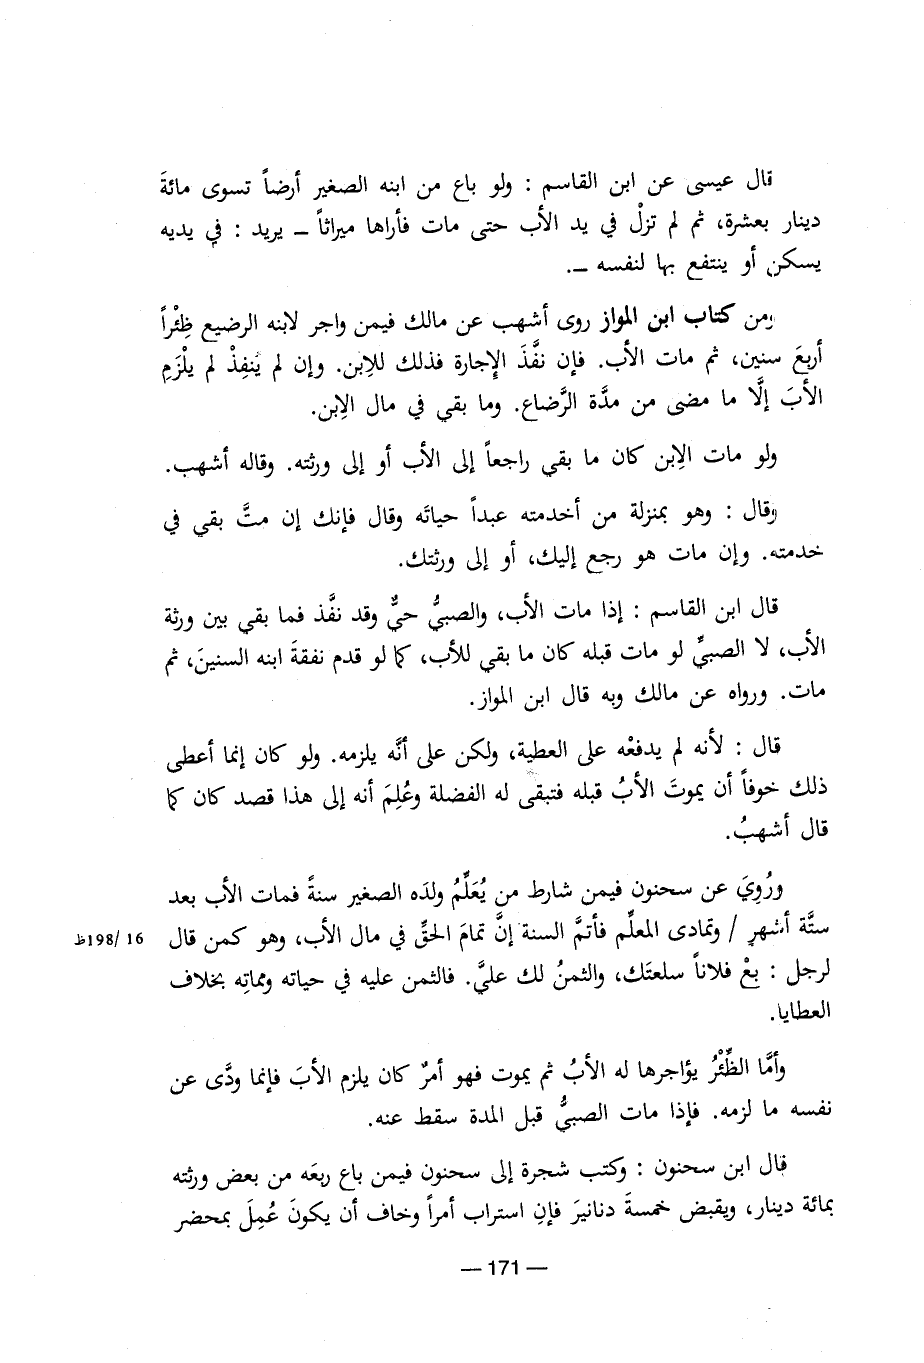 قال عيسى عن ابن القاسم : ولو باع من ابنه الصغير أرضاً تسوى مائةَ
دينار بعشرة، ثم لم تزلْ في يد الأب حتى مات فأراها ميراثاً – يريد : في يديه
يسكن أو ينتفع بها لنفسه –.
ومن كتاب ابن المواز روى أشهب عن مالك فيمن واجر لابنه الرضيع ظِئْراً
أربعَ سنين، ثم مات الأب. فإن نفَّذَ الإِجارة فذلك للاِبن. وإن لم يُنفِذْ لم يلْزَمِ
الأبَ إلَّا ما مضى من مدَّة الرَّضاع. وما بقي في مال الاِبن.
ولو مات الاِبن كان ما بقي راجعاً إلى الأب أو إلى ورثته. وقاله أشهب.
وقال : وهو بمنزلة من أخدمته عبداً حياتَه وقال فإنك إن متَّ بقي في
خدمته. وإن مات هو رجع إليك، أو إلى ورثتك.
قال ابن القاسم : إذا مات الأب، والصبيُّ حيٌّ وقد نفَّذ فما بقي بين ورثة
الأب، لا الصبيِّ لو مات قبله كان ما بقي للأب، كما لو قدم نفقةَ ابنه السنينَ، ثم
مات. ورواه عن مالك وبه قال ابن المواز.
قال : لأنه لم يدفعْه على العطية، ولكن على أنَّه يلزمه. ولو كان إنما أعطى
ذلك خوفاً أن يموتَ الأبُ قبله فتبقى له الفضلة وعُلِمَ أنه إلى هذا قصد كان كما
قال أشهبُ.
ورُويَ عن سحنون فيمن شارط من يُعَلِّمُ ولدَه الصغير سنةً فمات الأب بعد
ستَّة أشهرٍ / وتمادى المعلِّم فأتمَّ السنة إنَّ تمامَ الحقِّ في مال الأب، وهو كمن قال
16 /198ظ
لرجل : بعْ فلاناً سلعتَك، والثمنُ لك عليَّ. فالثمن عليه في حياته ومماتِه بخلاف
العطايا.
وأمَّا الظِّئْرُ يؤاجرها له الأبُ ثم يموت فهو أمرٌ كان يلزم الأبَ فإنما ودَّى عن
نفسه ما لزمه. فإذا مات الصبيُّ قبل المدة سقط عنه.
قال ابن سحنون : وكتب شجرة إلى سحنون فيمن باع ربعَه من بعض ورثته
بمائة دينار، ويقبض خمسةَ دنانيرَ فإنِ استراب أمراً وخاف أن يكونَ عُمِلَ بمحضر
— 171 —